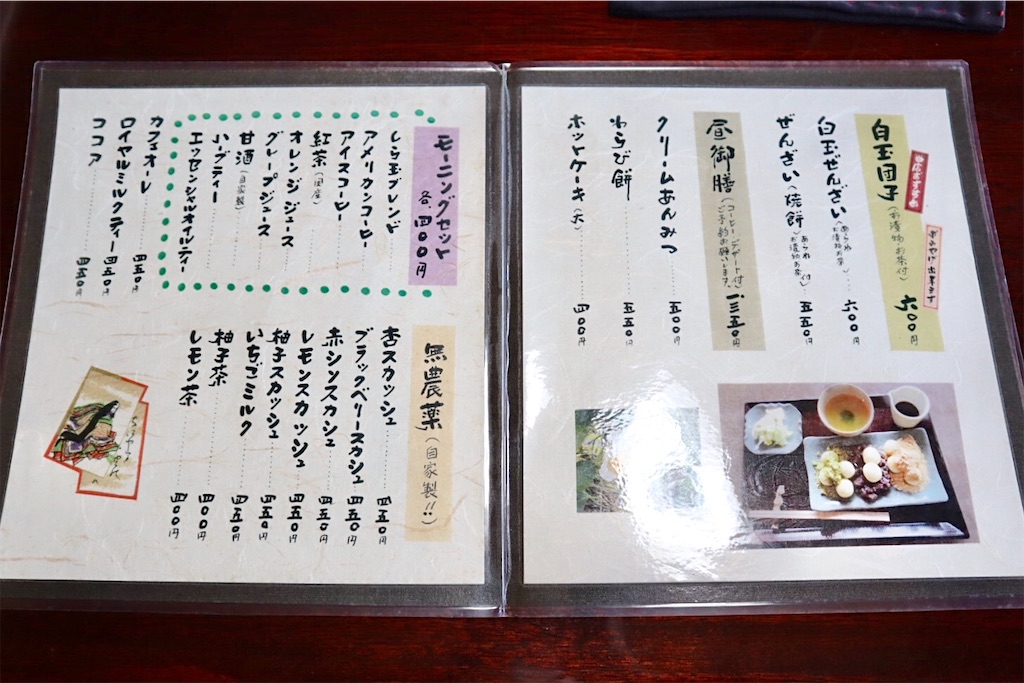 当店おすすめ
おみやげ出来ます
白玉団子(お漬物お茶付) 六〇〇円
白玉ぜんざい(あられお漬物お茶) 六〇〇円
ぜんざい(焼餅)(あられお漬物お茶付) 五五〇円
昼御膳(コーヒー、デザート付 ご予約お願いします) 一、三五〇円
クリームあんみつ 五五〇円
わらび餅 五五〇円
ホットケーキ(大) 四〇〇円
モーニングセット 各、四〇〇円
しら玉ブレンド
アメリカンコーヒー
アイスコーヒー
紅茶(国産)
オレンジジュース
グレープジュース
甘酒(自家製)
ハーブティー
エッセンシャルオイルティー
カフェオーレ 四五〇円
ロイヤルミルクティー 四五〇円
ココア 四五〇円
無農薬(自家製!!)
杏スカッシュ 四五〇円
ブラックベリースカシュ 四五〇円
赤シソスカシュ 四五〇円
レモンスカッシュ 四五〇円
柚子スカッシュ 四五〇円
いちごミルク 四五〇円
柚子茶 四〇〇円
レモン茶 四〇〇円